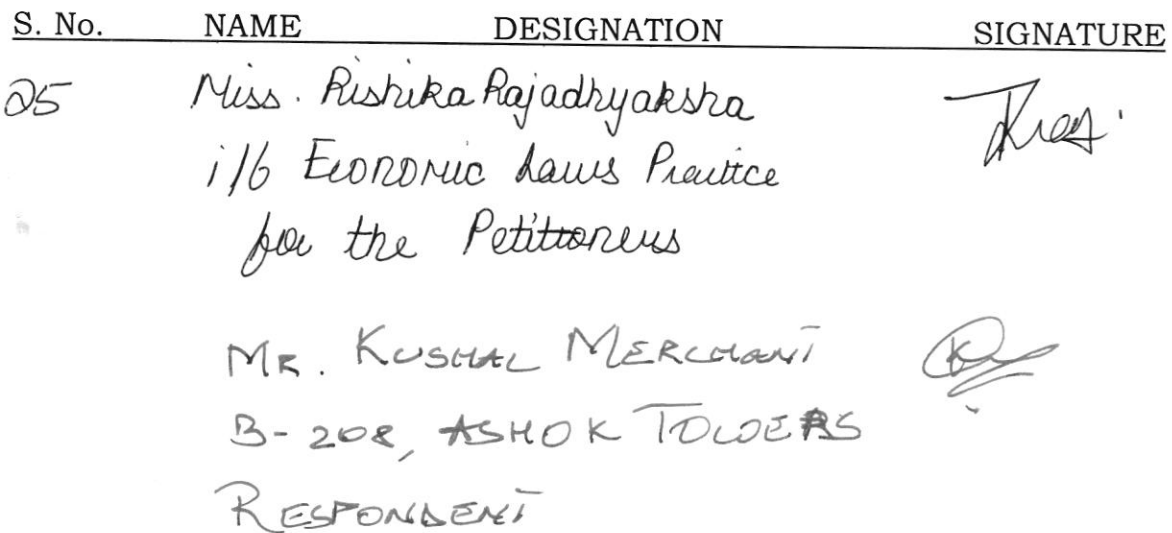 S. No. NAME DESIGNATION SIGNATURE
25 Miss. Rishika Rajadhyaksha
i/b Economic Laws Practice
for the Petitioners
MR. KUSHAL MERCHANT
B-208, ASHOK TOWERS
RESPONDENT